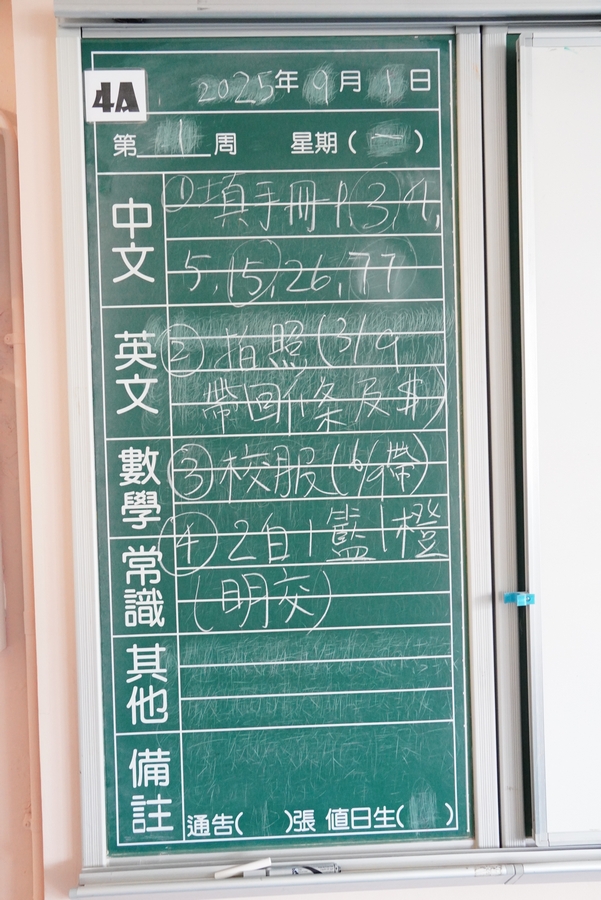 4A
2025年9月1日
第1周 星期(一)
中文
①填手冊P.3,4,
5,15,26,77
英文
②拍照(3/9
帶回條及$)
數學
③校服(6/9帶)
④2白1籃1橙
常識
(明交)
其他
備註
通告( )張 值日生( )